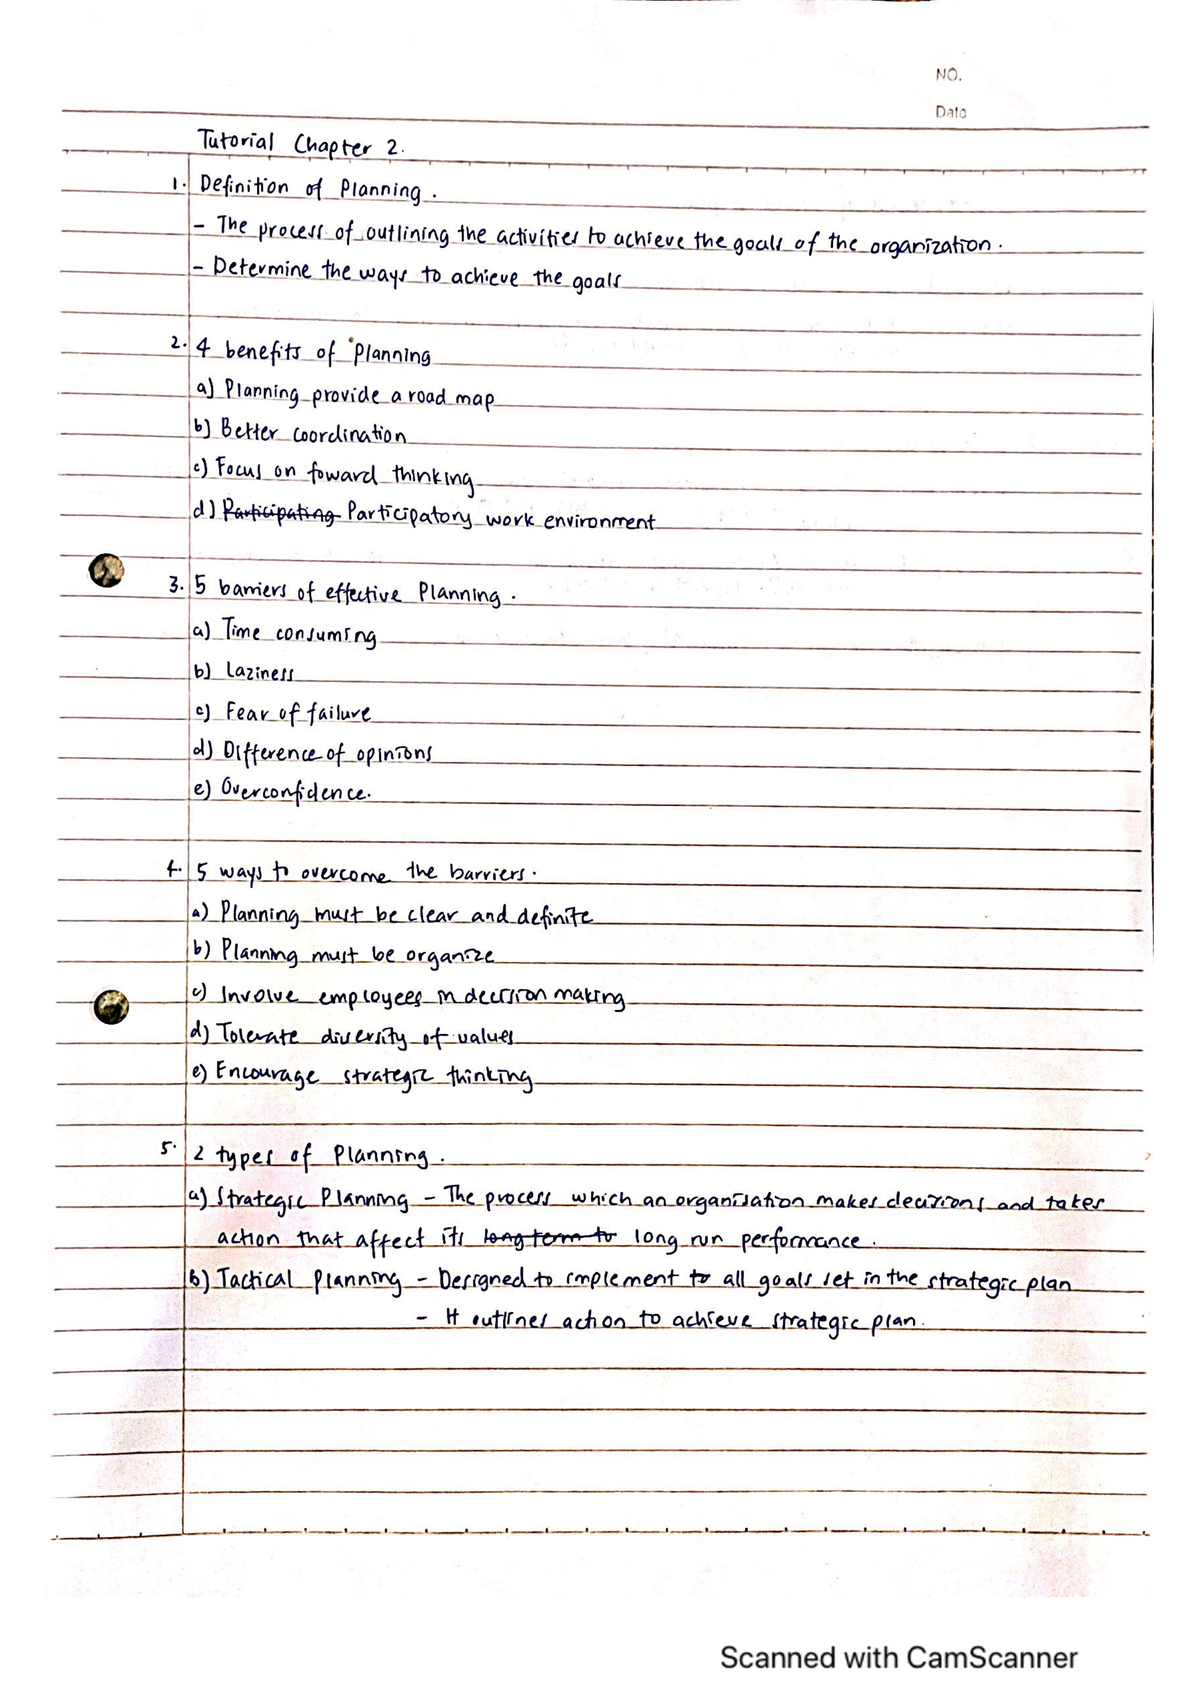 NO.
Date
Tutorial Chapter 2.
1. Definition of Planning.
- The process of outlining the activities to achieve the goals of the organization.
- Determine the ways to achieve the goals
2. 4 benefits of Planning
a) Planning provide a road map
b) Better coordination
c) Focus on foward thinking
d) Participating Participatory work environment
3. 5 barriers of effective Planning.
a) Time consuming
b) Laziness
c) Fear of failure
d) Difference of opinions
e) Overconfidence.
4. 5 ways to overcome the barriers.
a) Planning must be clear and definite
b) Planning must be organize
c) Involve employees in decision making
d) Tolerate diversity of values
e) Encourage strategic thinking
5. 2 types of Planning.
a) Strategic Planning - The process which an organisation makes decisions and takes
action that affect its long term to long run performance.
b) Tactical Planning - Designed to implement to all goals set in the strategic plan
- It outlines action to achieve strategic plan.
Scanned with CamScanner